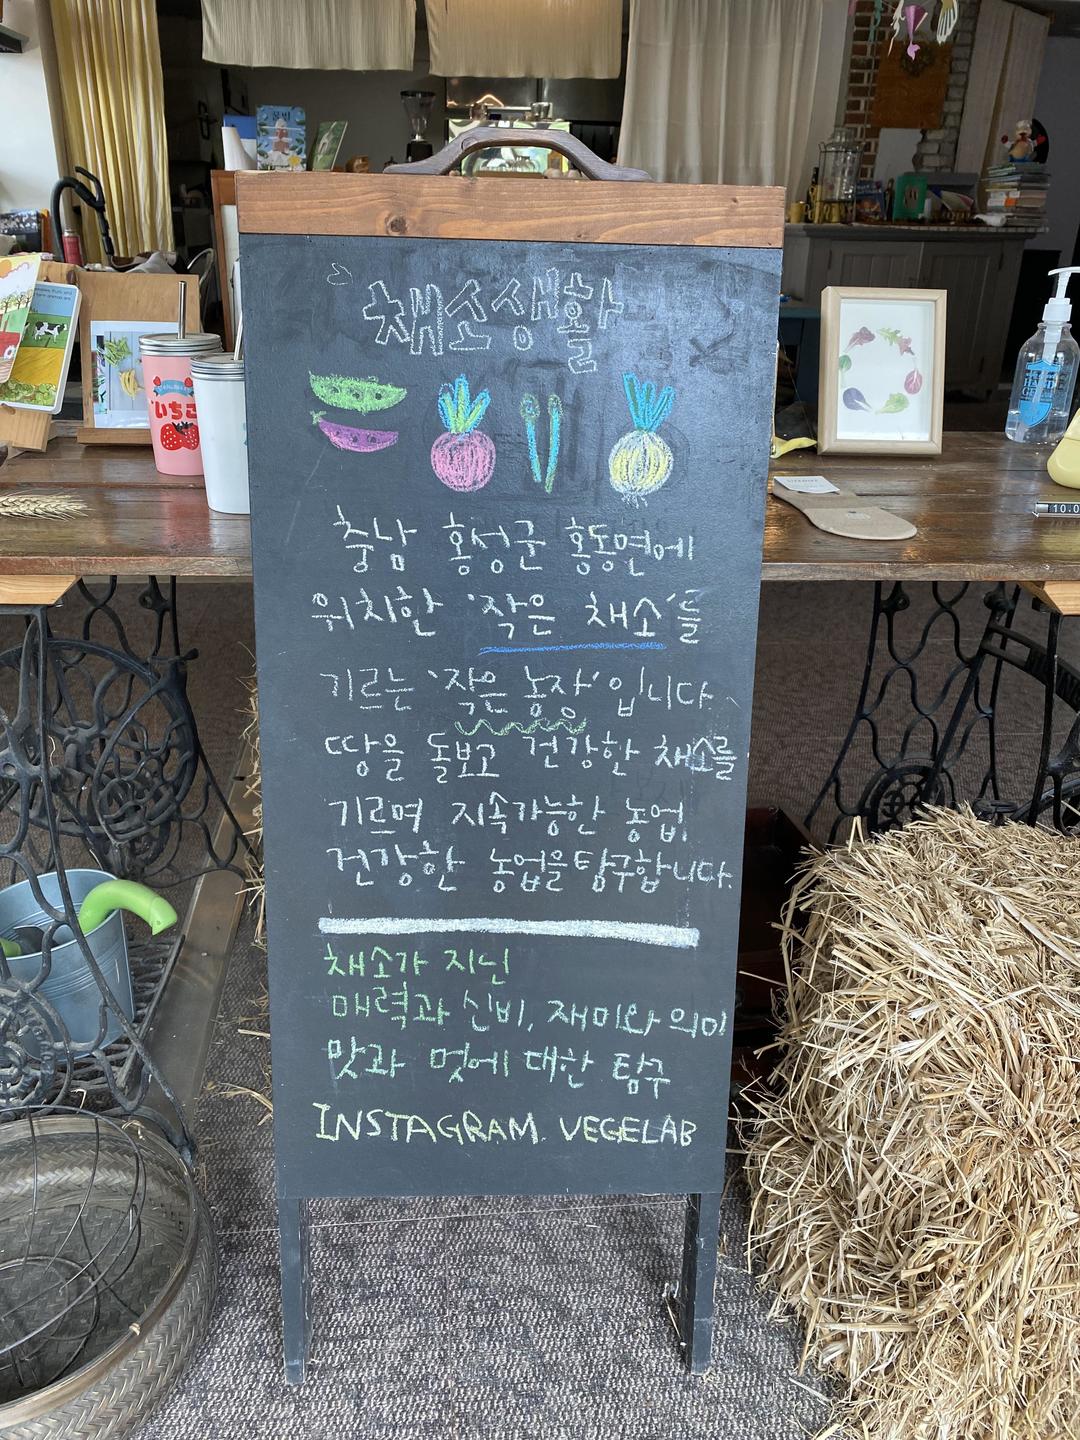 채소생활
충남 홍성군 홍동면에
위치한 '작은 채소'를
기르는 '작은 농장'입니다.
땅을 돌보고 건강한 채소를
기르며 지속가능한 농업,
건강한 농업을 탐구합니다.
채소가 지닌
매력과 신비, 재미와 의미
맛과 멋에 대한 탐구
INSTAGRAM. VEGELAB
いちご